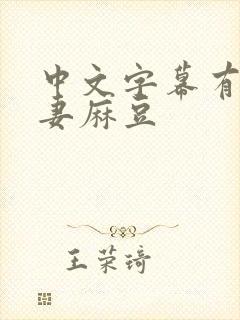 中文字幕有
妻麻豆
王荣琦